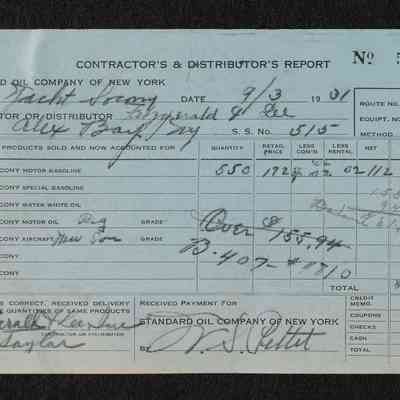 CONTRACTOR'S & DISTRIBUTOR'S REPORT Nº 5
RD OIL COMPANY OF NEW YORK
Yacht Socony DATE 9/3 1931
ROUTE NO.
TOR OR DISTRIBUTOR Fitzgerald & Lee
EQUIPT. NO
Alex Bay, Ny S. S. No. 515
METHOD
PRODUCTS SOLD AND NOW ACCOUNTED FOR QUANTITY RETAIL PRICE LESS COM'N LESS RENTAL NET
CONY MOTOR GASOLINE 550 172 02 112
CONY SPECIAL GASOLINE
CONY WATER WHITE OIL
CONY MOTOR OIL GRADE Over
CONY AIRCRAFT GRADE 155.94
CONY B-407-
CONY
TOTAL
IS CORRECT, RECEIVED DELIVERY
E QUANTITIES OF SAME PRODUCTS
Received Payment For
CREDIT MEMO.
STANDARD OIL COMPANY OF NEW YORK
COUPONS
CONTRACTOR OR DISTRIBUTOR
CHECKS
BY
CASH
TOTAL